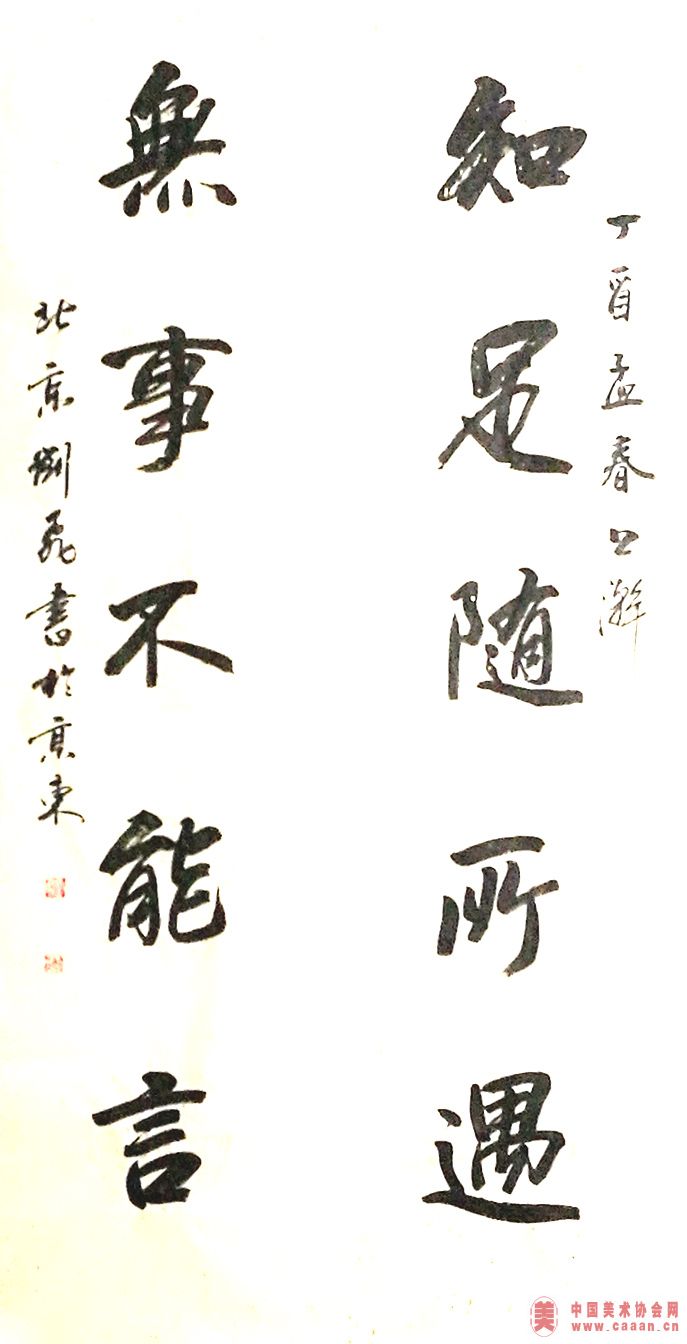 丁酉孟春之瀚
知足随所遇
無事不能言
北京刘飛書於京東
美
中国美术协会网
www.caaan.cn